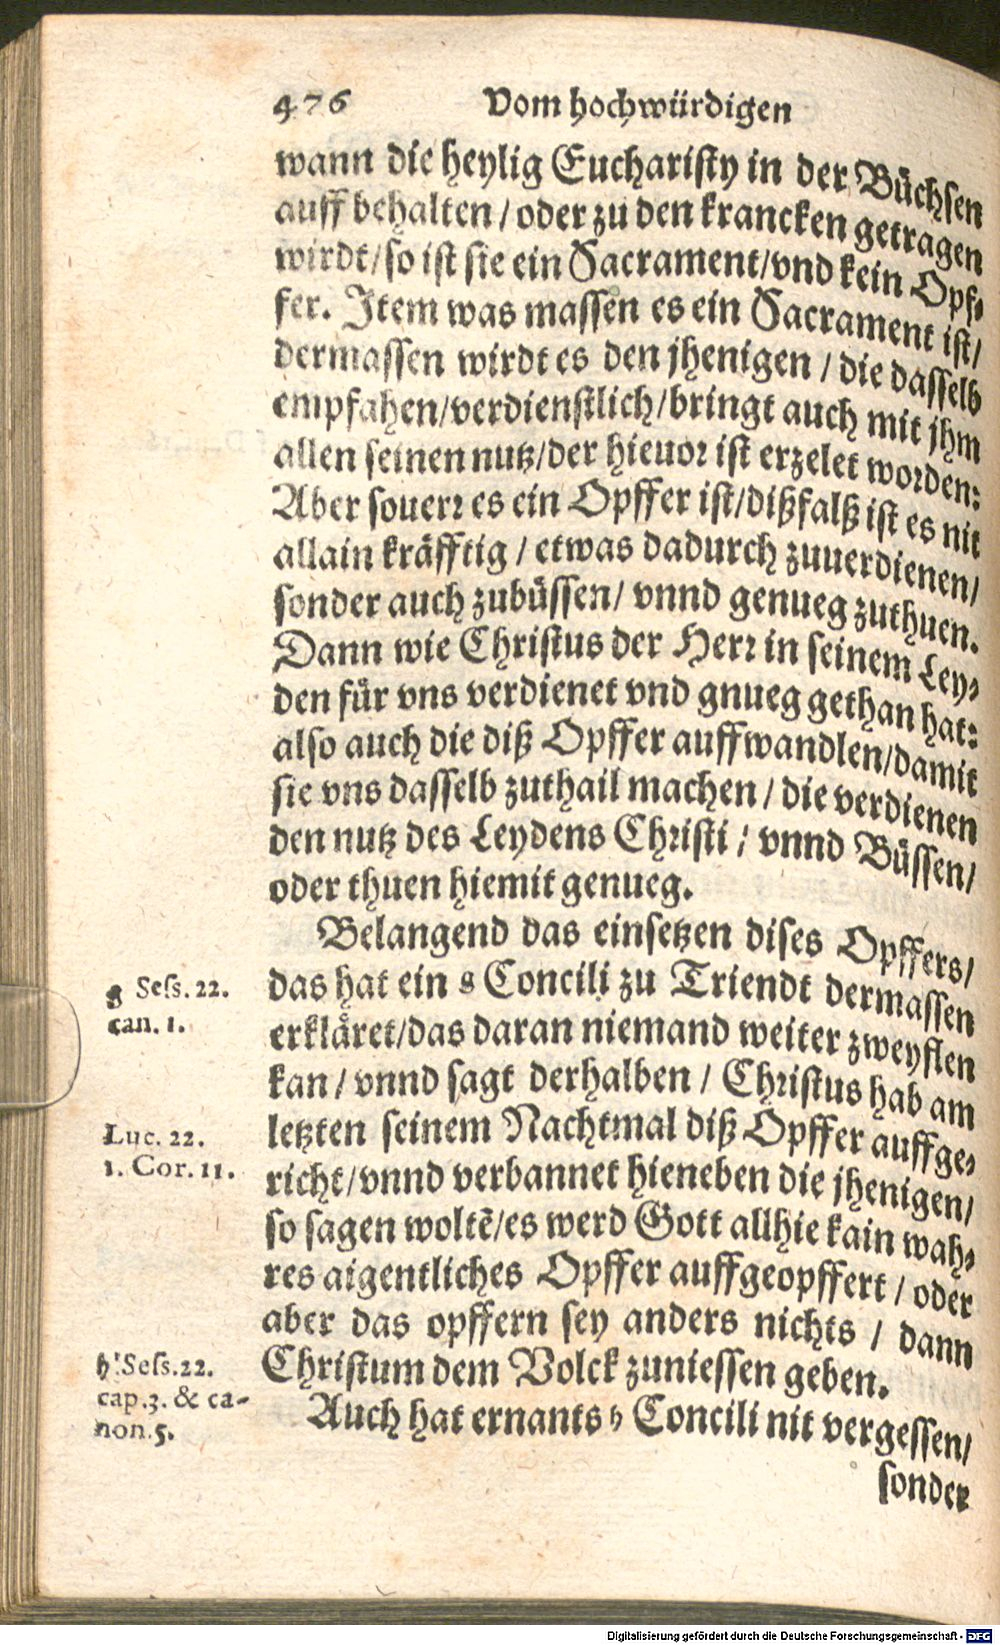 476 Vom hochwürdigen
wann die heylig Eucharisty in der Büchsen
auff behalten / oder zu den krancken getragen
wirdt/so ist sie ein Sacrament/vnd kein Opf⸗
fer. Item was massen es ein Sacrament ist/
dermassen wirdt es den jhenigen / die dasselb
empfahen/verdienstlich/bringt auch mit jhm
allen seinen nutz/der hieuor ist erzelet worden:
Aber souerr es ein Opffer ist/dißfalß ist es nit
allain kräfftig / etwas dadurch zuuerdienen/
sonder auch zubüssen/ vnnd genueg zuthuen.
Dann wie Christus der Herr in seinem Ley⸗
den für vns verdienet vnd gnueg gethan hat:
also auch die diß Opffer auffwandlen/damit
sie vns dasselb zuthail machen / die verdienen
den nutz des Leydens Christi / vnnd Büssen/
oder thuen hiemit genueg.
Belangend das einsetzen dises Opffers/
das hat ein g Concili zu Triendt dermassen
g Sess. 22.
can. 1.
erkläret/das daran niemand weiter zweyflen
kan / vnnd sagt derhalben / Christus hab am
letzten seinem Nachtmal diß Opffer auffge⸗
Luc. 22.
1. Cor. 11.
richt/vnnd verbannet hieneben die jhenigen/
so sagen woltē/es werd Gott allhie kain wah⸗
res aigentliches Opffer auffgeopffert / oder
aber das opffern sey anders nichts / dann
Christum dem Volck zuniessen geben.
h Sess.22.
cap.3. & ca-
non.5.
Auch hat ernants h Concili nit vergessen/
sonder
Digitalisierung gefördert durch die Deutsche Forschungsgemeinschaft - DFG